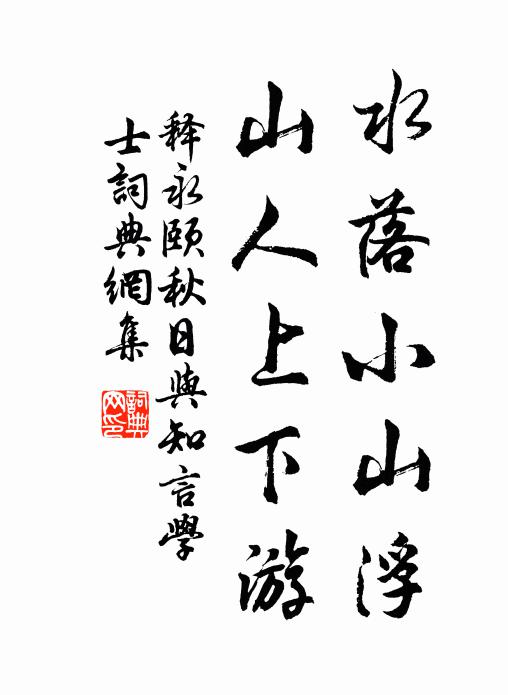 水落小山浮
山人上下游
释永颐秋日與知言學
士詞典網集
詞典
网印